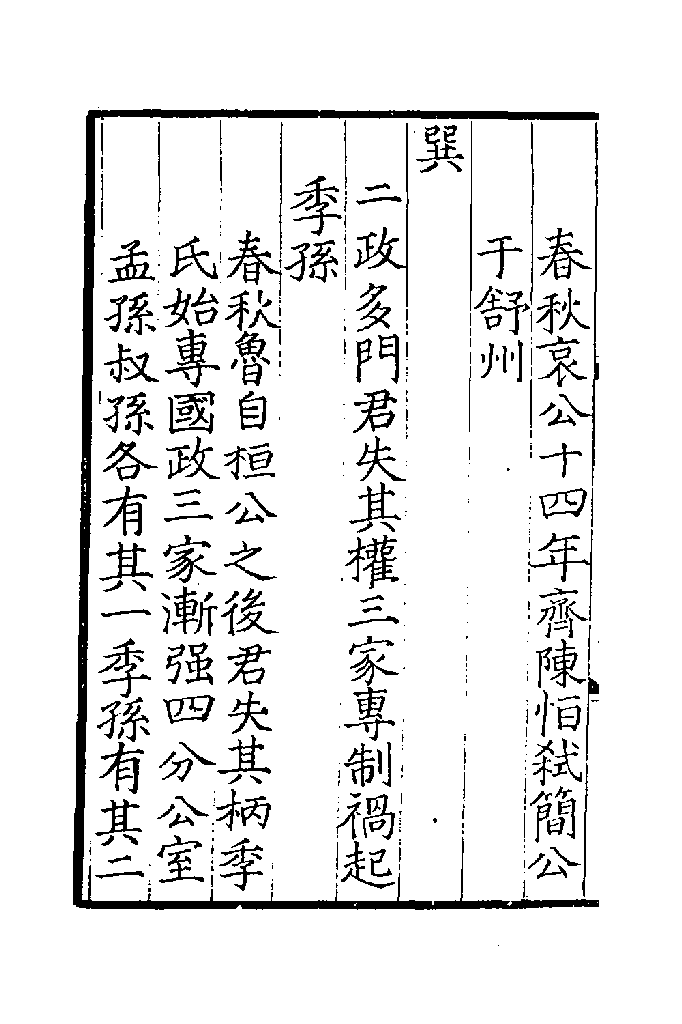 春秋哀公十四年齊陳怕弑簡公
干舒州
巽
二政多門君失其權三家專制禍起
季孫
春秋魯自桓公之後君失其柄季
氏始專國政三家漸强四分公室
孟孫叔孫各有其一季孫有其二